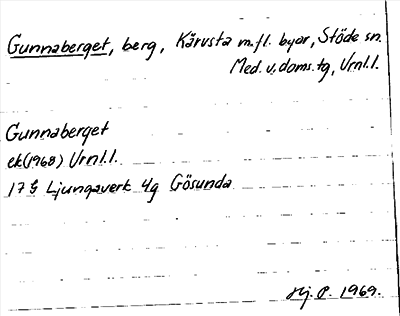 Gunnaberget, berg, Kärvsta m.fl. byar, Stöde sn.
Med. v. doms. tg, Vrnl.l.
Gunnaberget
ek(1968) Vrnl.l.
17 G Ljungaverk 4g Gösunda
Hj. P. 1969.